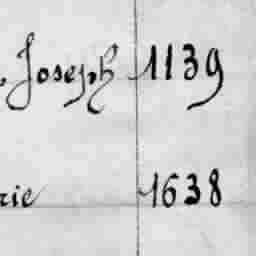 , Joseph 1139
rie 1638